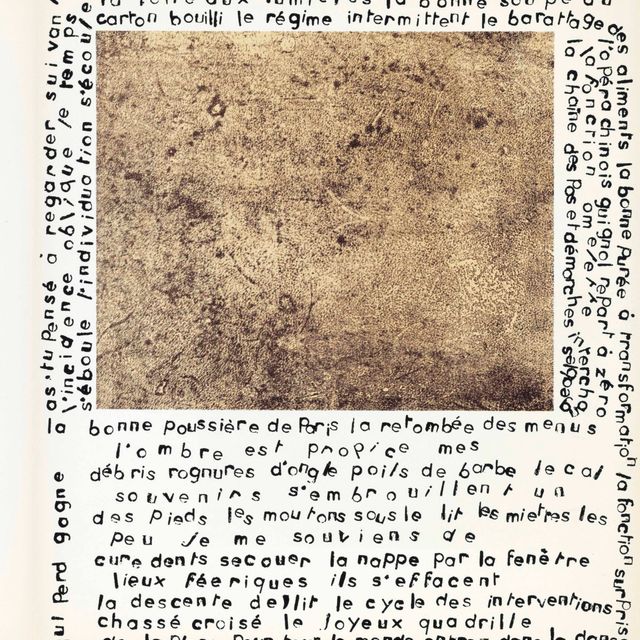 carton bouilli le régime intermittent le barattage
des aliments la bonne purée à transformation la fonction surpris
l'opéra chinois guignol repart à zéro
la fonction
la chaîne des pas et démarches
as-tu pensé à regarder suivan
l'incidence oblique le temps
s'éboule l'individuation s'écoule
la bonne poussière de Paris la retombée des menus
l'ombre est propice mes
débris rognures d'ongle poils de barbe le cal
souvenirs s'embrouillent un
des pieds les moutons sous le lit les miettes les
peu je me souviens de
cure dents secouer la nappe par la fenêtre
lieux féeriques ils s'effacent
la descente de lit le cycle des interventions
chassé croisé le joyeux quadrille
perd gagne